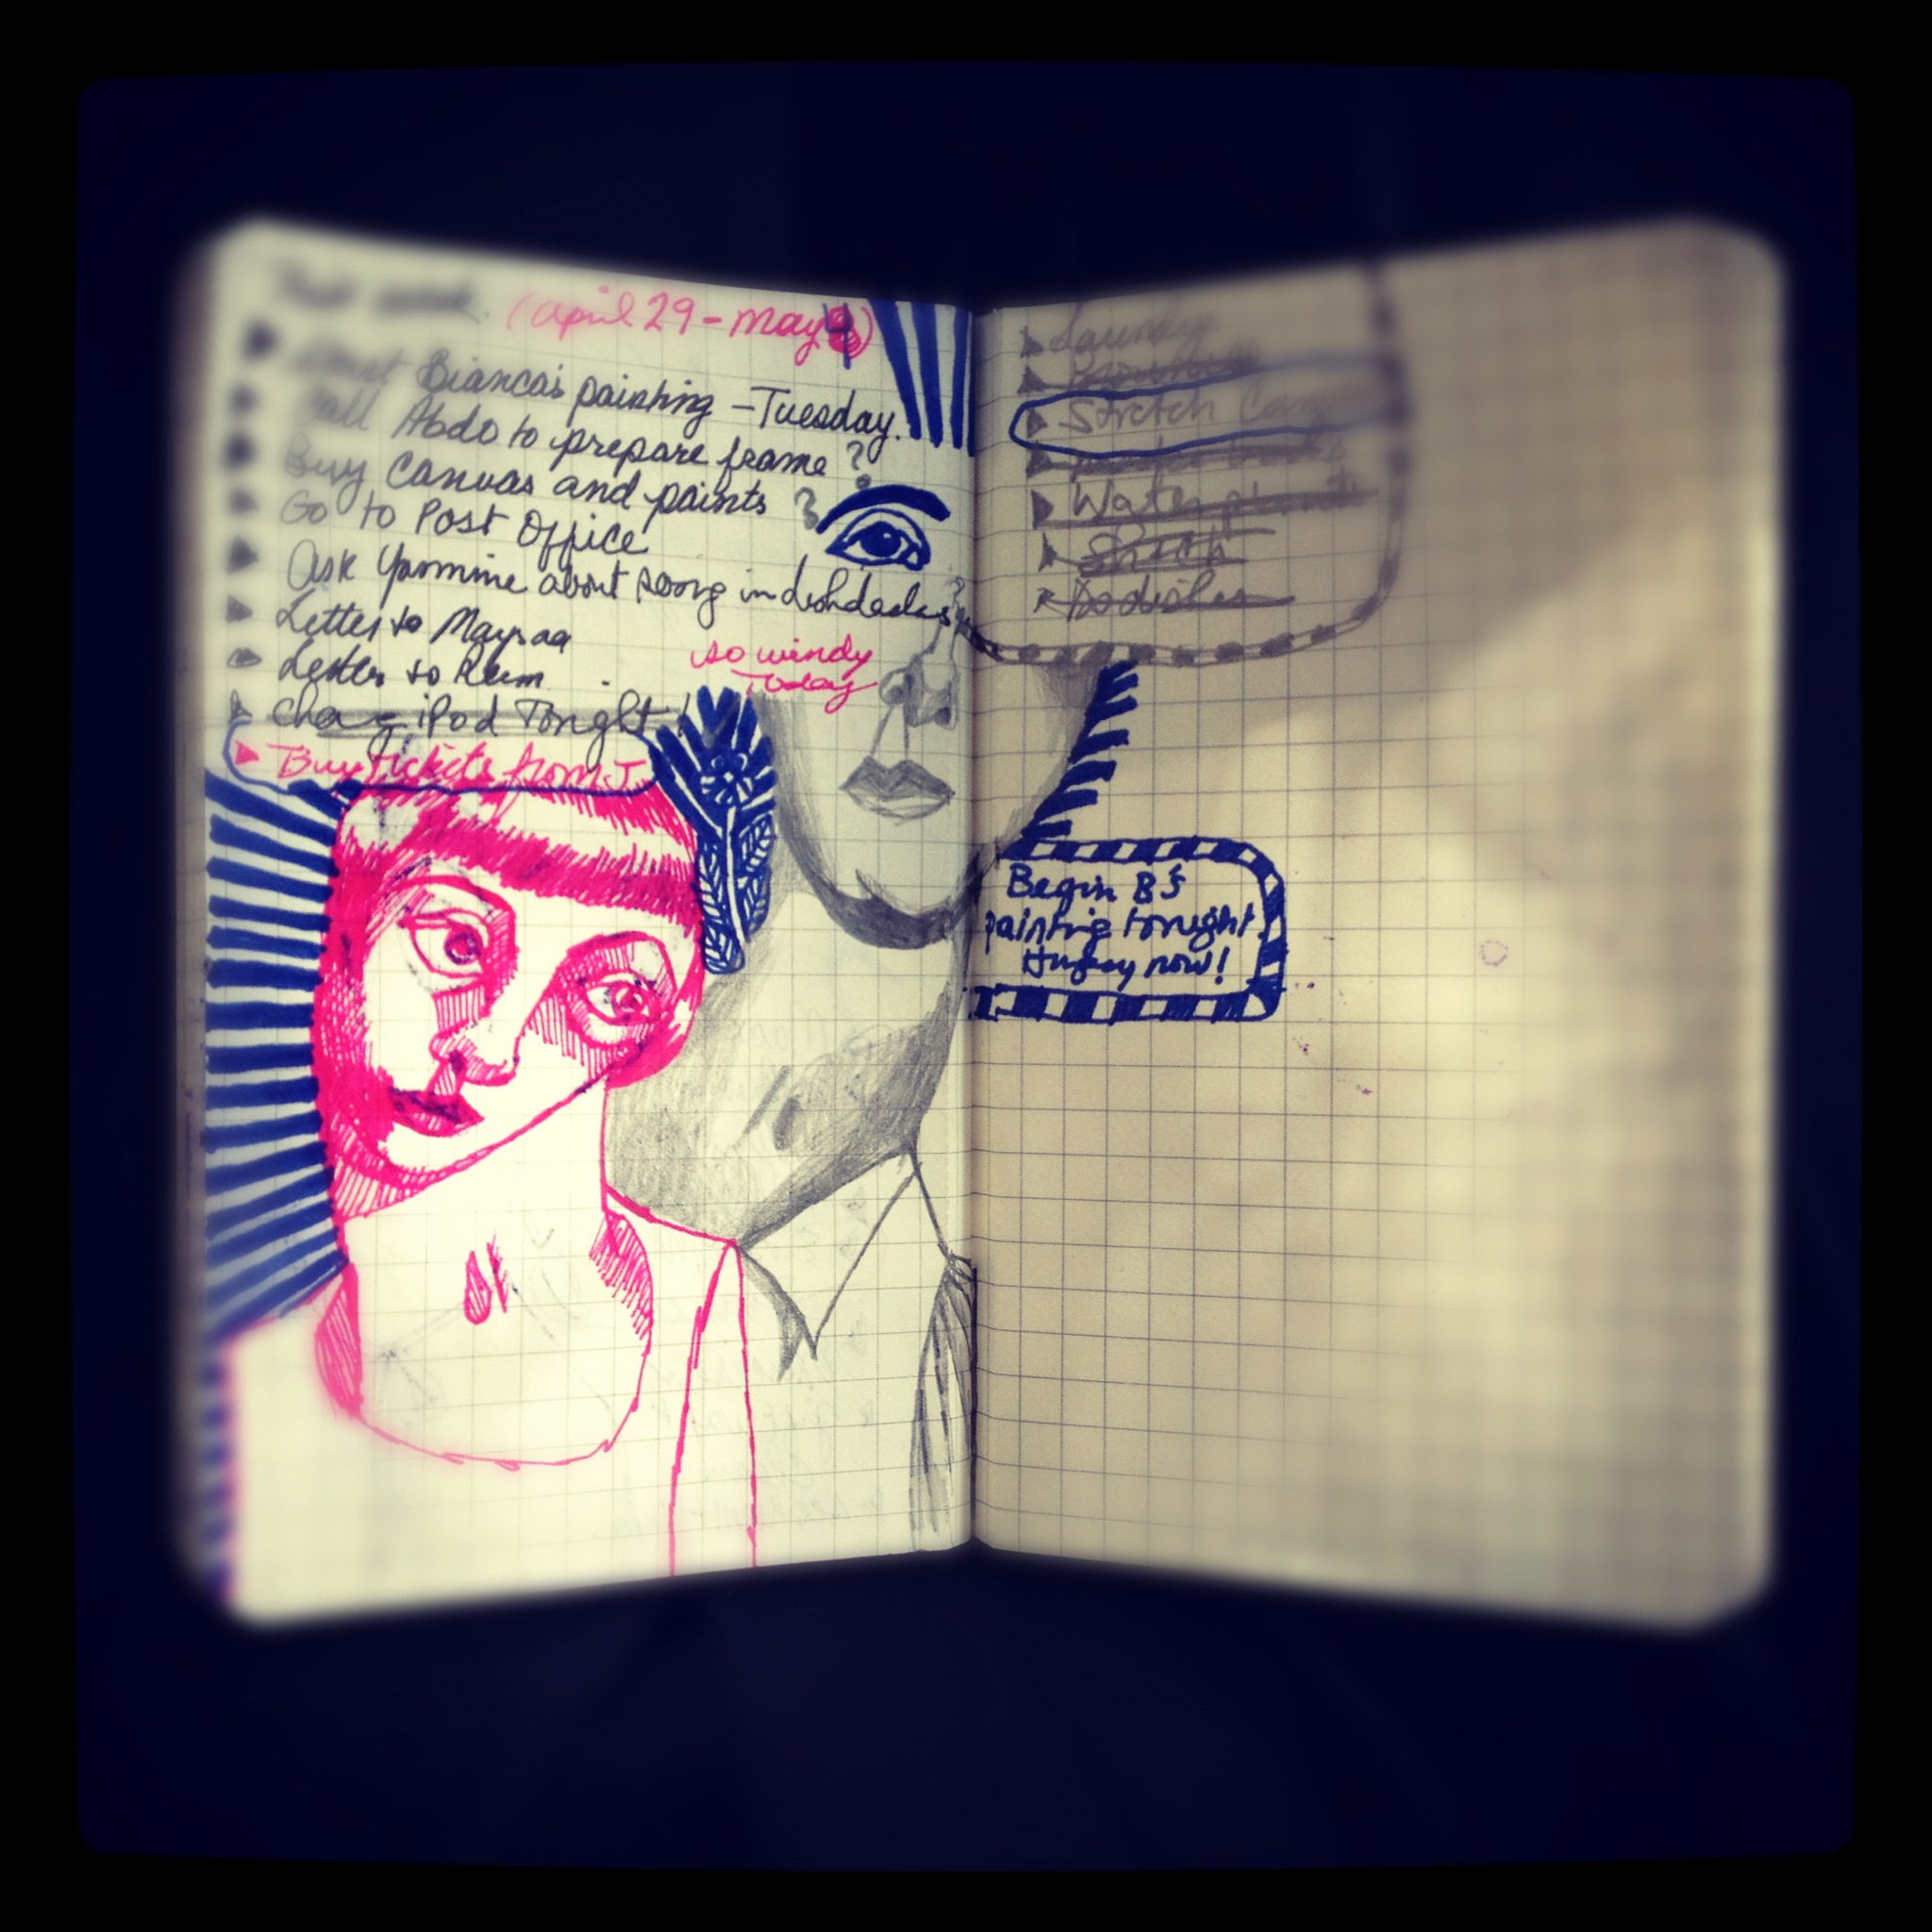 This week. (april 29 - may 4)
Start Bianca's painting - Tuesday.
Call Abdo to prepare frame ?
Buy Canvas and paints ?
Go to Post Office
Ask Yasmine about song in dishdasha ?
Letter to Maysaa
Letter to Reem
Charge iPod Tonight !
Buy tickets from J
so windy
Today
Laundry
Stretch Canvas
Water plants
Snack
Do dishes
Begin B's
painting tonight
Hungry now!